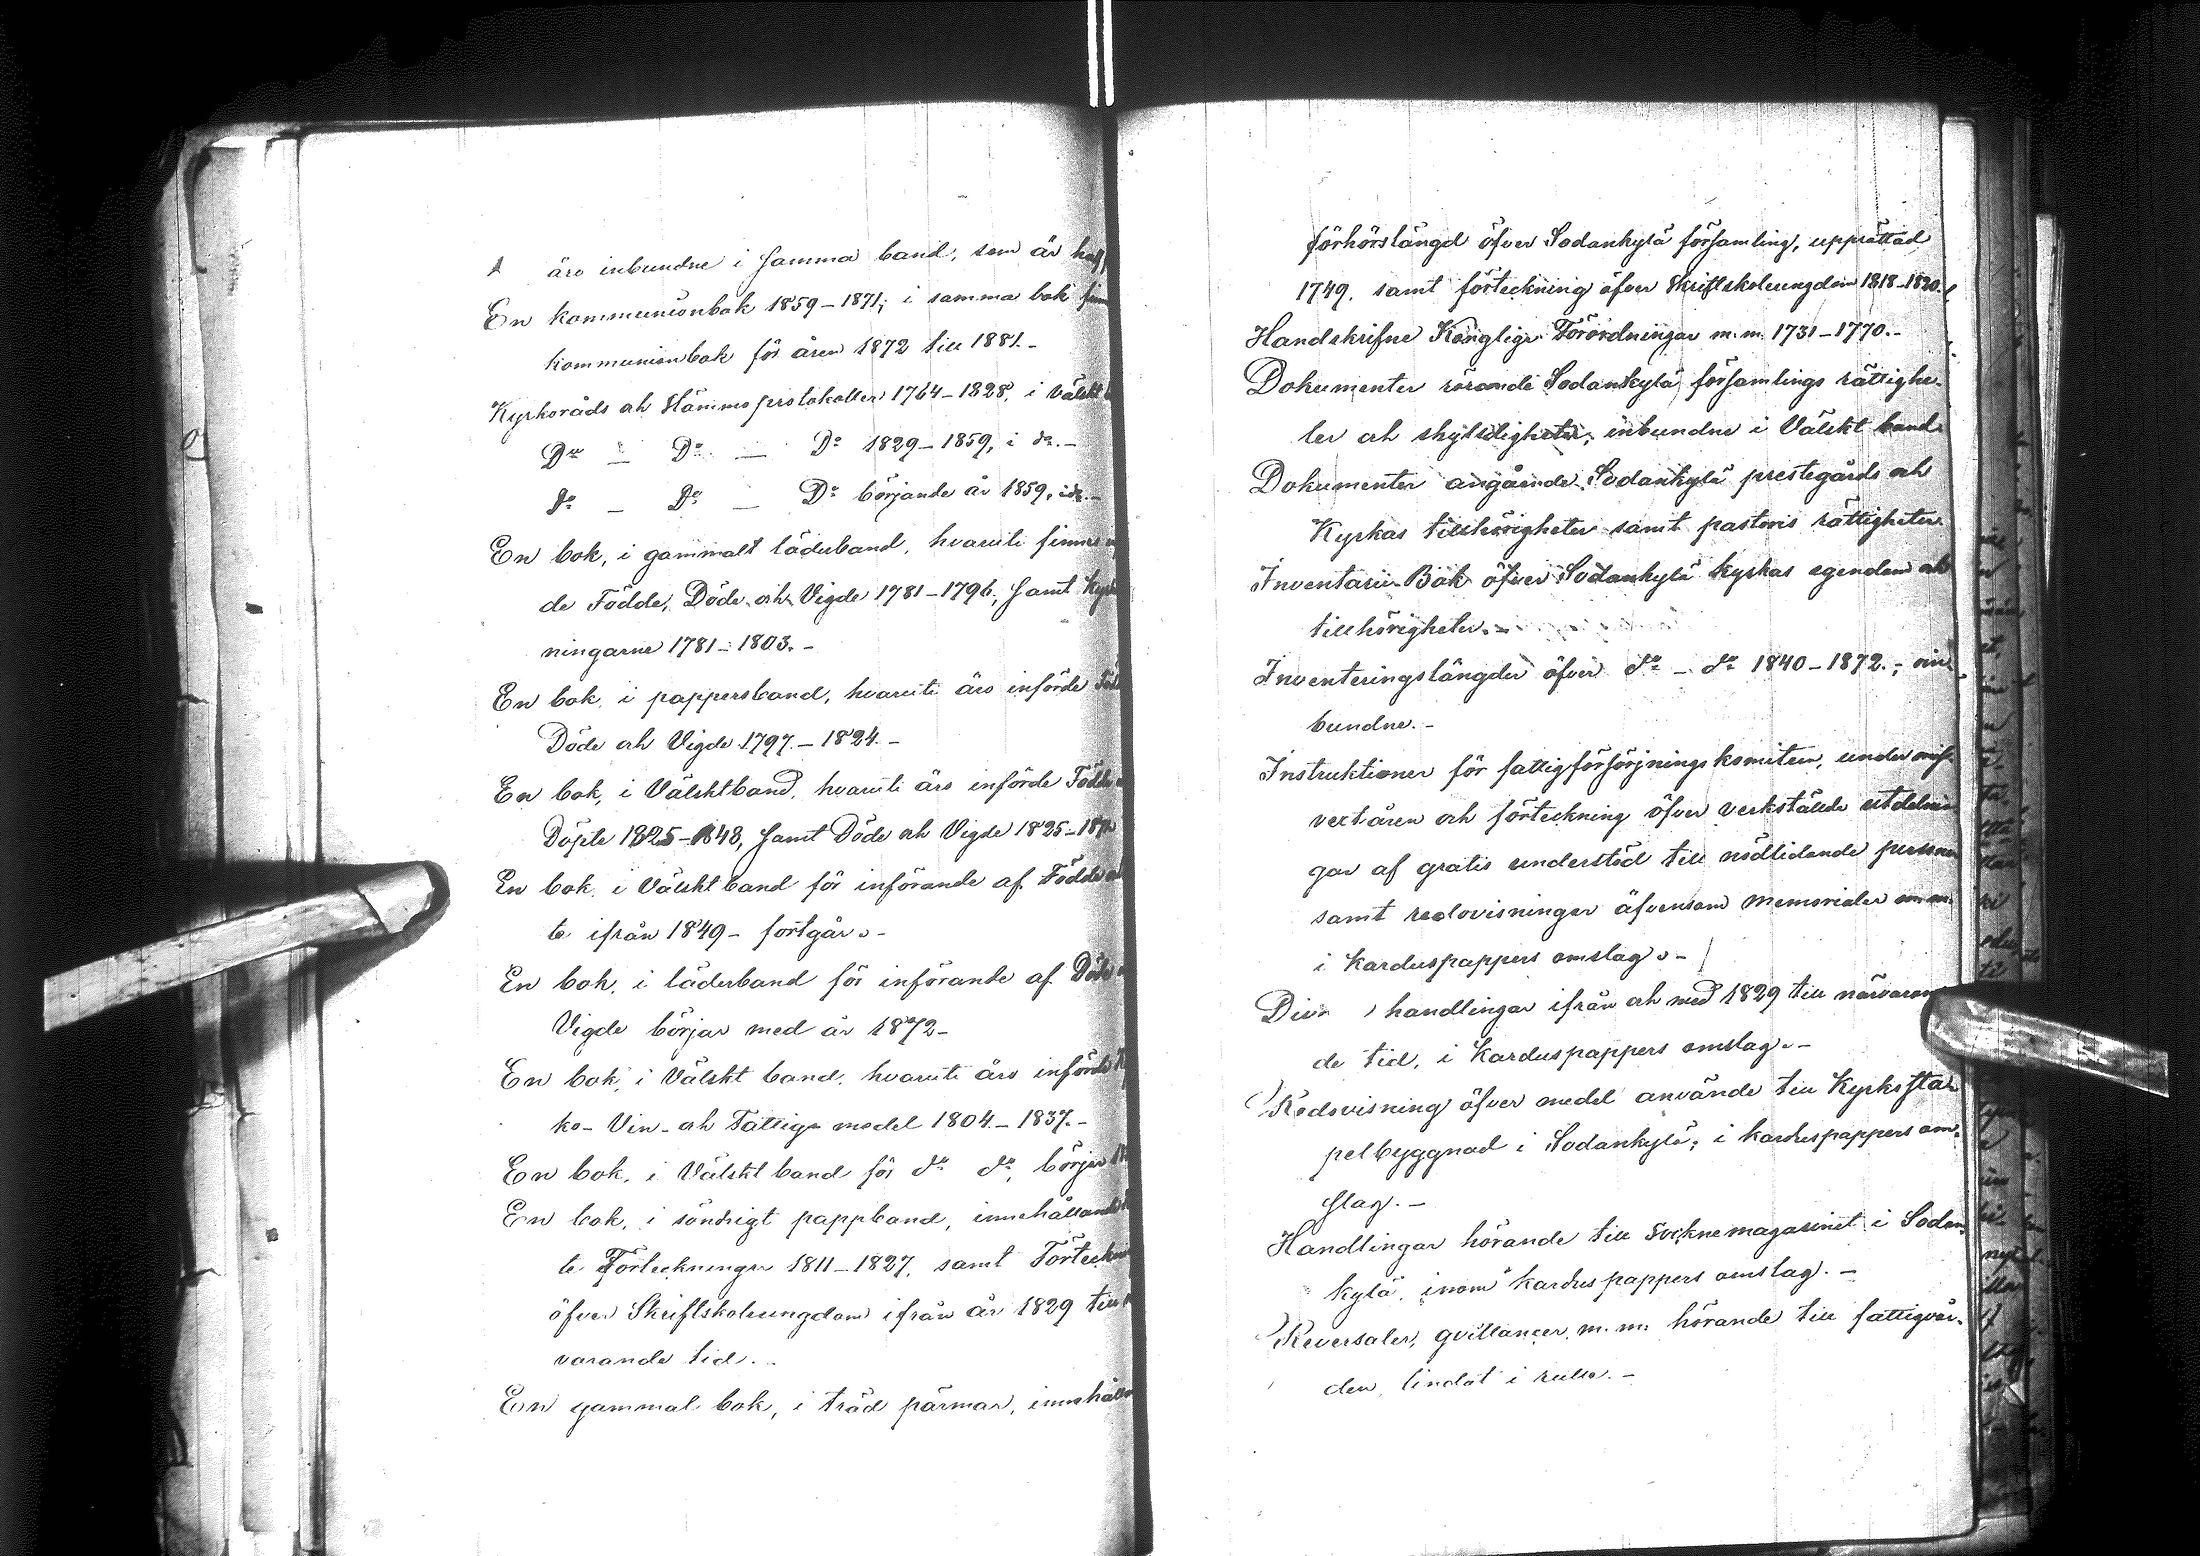 äro inbundne i samma band, som är
En kommunionbok 1859–1871; i samma bok
kommunionbok för åren 1872 till 1881.–
Kyrkoråds och Stämmoprotokoller 1764–1828, i Välskt
Do – Do – Do 1829–1859, i do.–
Do – Do – Do börjande år 1859, i do.–
En bok, i gammalt läderband, hvaruti finnes
de Födde, Döde och Vigde 1781–1796, samt
ningarne 1781–1803.–
En bok, i pappersband, hvaruti äro införde
Döde och Vigde 1797.–1824.–
En bok, i Välsktband, hvaruti äro införde Födde
Döpte 1825–1848, samt Döde och Vigde 1825–
En bok, i Välskt band för införande af Födde
te ifrån 1849– fortgår.–
En bok, i läderband för införande af Döde
Vigde börjar med år 1872–
En bok, i Välskt band, hvaruti äro införde
ko- Vin- och Fattige medel 1804–1837.–
En bok, i Välskt band för do do, börjar
En bok, i söndrigt pappband, innehållande
te Förteckningar 1811–1827, samt
öfver Skriftskoleungdom ifrån år 1829 till
varande tid.–
En gammal bok, i träd pärmar,
förhörslängd öfver Sodankylä församling, upprättad
1749, samt förteckning öfver Skriftskoleungdom 1818–1820.
Handskrifne Kongliga Förordningar m.m. 1731–1770.–
Dokumenter rörande Sodankylä församlings rättighe-
ter och skyldigheter, inbundne i Välskt band.
Dokumenter angående Sodankylä prestegårds och
Kyrkas tillhörigheter samt pastoris rättigheter
Inventarii Bok öfver Sodankylä kyrkas egendom och
tillhörigheter.–
Inventeringslängder öfver do – do 1840–1872.;
bundne.–
Instruktioner för fattigförsörjnings komiteen, under miss-
vextåren och förteckning öfver verkställde utdelnin
gar af gratis understöd till nödlidande
samt redovisningar äfvensom memorialer
i karduspappers omslag.–
handlingar ifrån och med 1829 till närvaran
de tid, i karduspappers omslag.–
Redovisning öfver medel använde till Kyrkosta-
pelbyggnad i Sodankylä; i karduspappers om-
slag.–
Handlingar hörande till Socknemagasinet i Sodan-
kylä, inom karduspappers omslag.–
Reversaler, qvittancer, m.m. hörande till fattigvår-
den, lindat i rulle.–